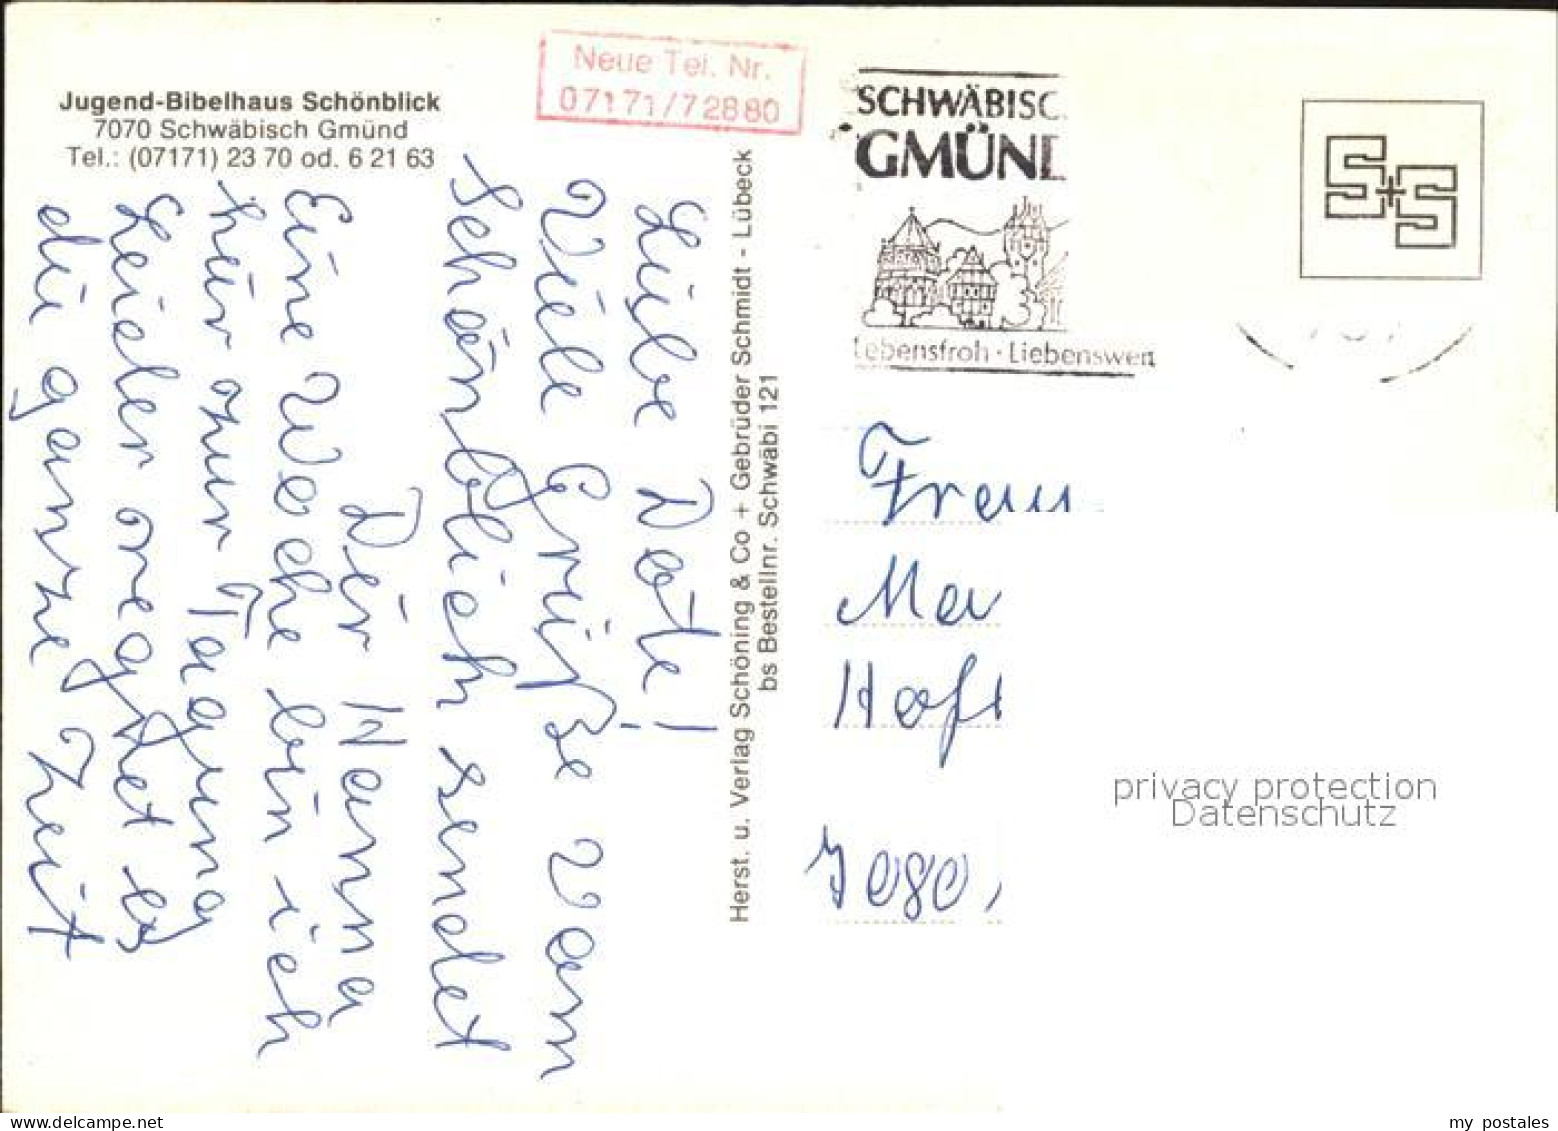 Jugend-Bibelhaus Schönblick
7070 Schwäbisch Gmünd
Tel.: (07171) 23 70 od. 6 21 63
Neue Tel. Nr.
07171/72880
SCHWÄBISC
GMÜND
Lebensfroh · Liebenswert
S+S
Liebe Dote!
Viele Grüße vom
Schönblick sendet
Dir Nanna
Eine Woche bin ich
hier zur Tagung
Leider regnet es
die ganze Zeit
Herst. u. Verlag Schöning & Co + Gebrüder Schmidt - Lübeck
bs Bestellnr. Schwäbi 121
Frau
Ma
Hofs
7080,
privacy protection
Datenschutz
delcampe.net
my postales